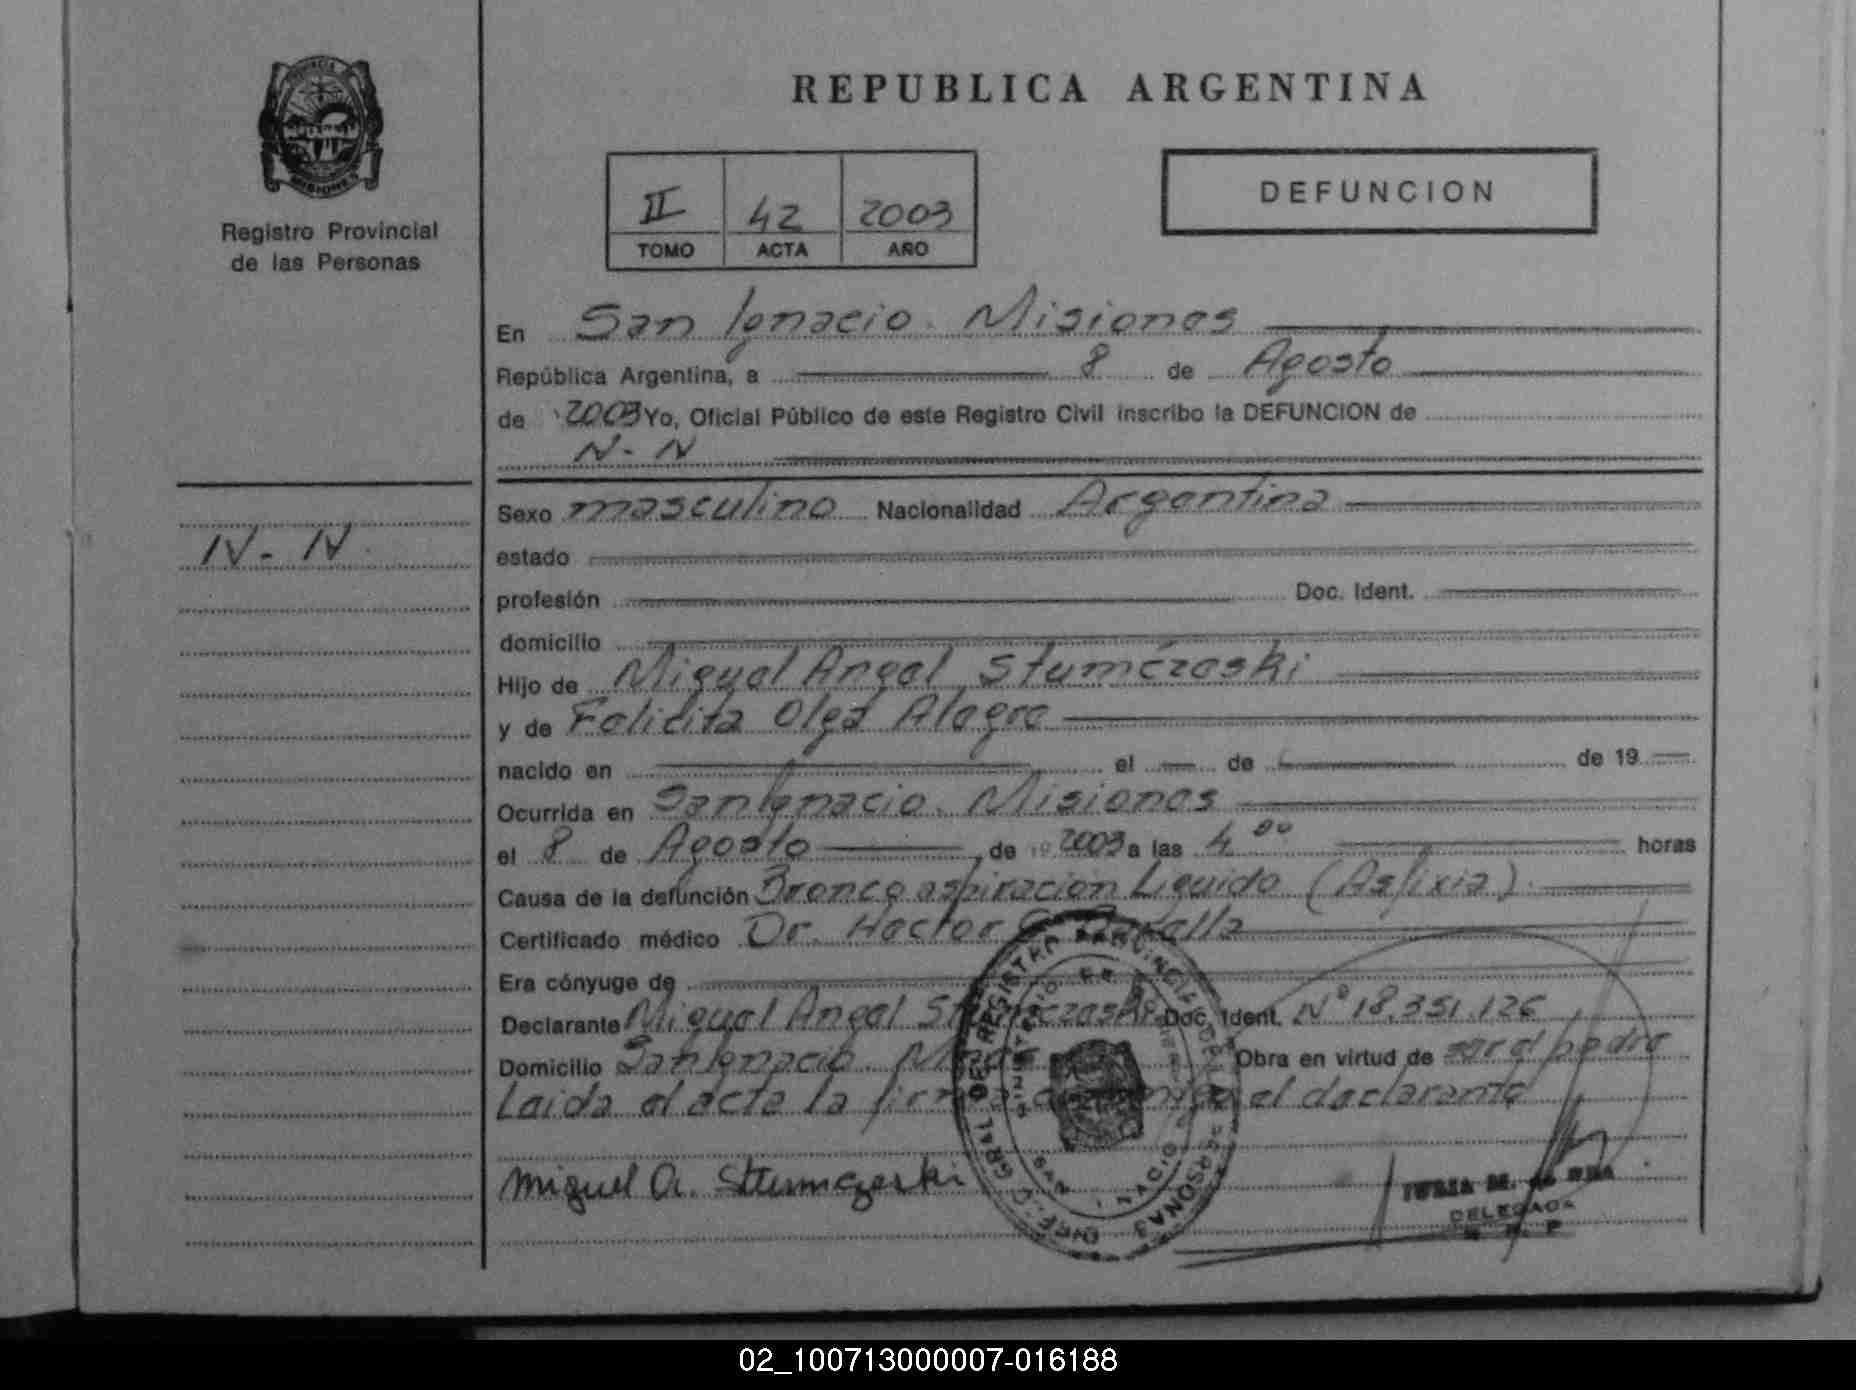 REPUBLICA ARGENTINA
PROVINCIA DE
MISIONES
Registro Provincial
de las Personas
II 42 2003
TOMO ACTA AÑO
DEFUNCION
En San Ignacio. Misiones
República Argentina, a 8 de Agosto
de 2003 Yo, Oficial Público de este Registro Civil inscribo la DEFUNCION de
N-N
N-N.
Sexo masculino Nacionalidad Argentina
estado
profesión Doc. Ident.
domicilio
Hijo de Miguel Angel Stumczeski
y de Felicita Olga Alegre
nacido en el de de 19
Ocurrida en San Ignacio. Misiones
el 8 de Agosto de 2003 a las 4 00 horas
Causa de la defunción Bronco aspiración Liquido (Asfixia).
Certificado médico Dr. Hector
Era cónyuge de
Declarante Miguel Angel Stumczeski Doc. Ident. Nº 18.351.126
Domicilio San Ignacio. Mnes Obra en virtud de ser el padre
Leida el acta la firma conmigo el declarante
Miguel A. Stumczeski
DELEGADA
R. P. P
02_100713000007-016188